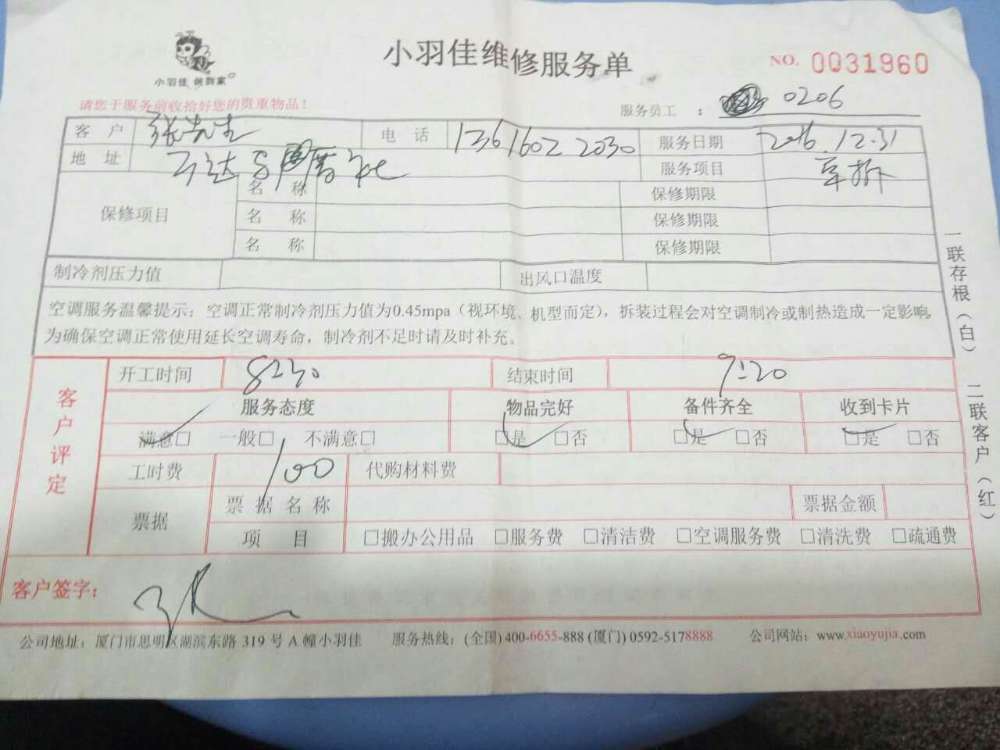 小羽佳 俩到家
小羽佳维修服务单
NO. 0031960
请您于服务前收拾好您的贵重物品！
服务员工： 0206
客户 张先生 电话 13616022030 服务日期 2016.12.31
地址 万达 服务项目 单拆
保修项目 名称 保修期限
名称 保修期限
名称 保修期限
制冷剂压力值 出风口温度
空调服务温馨提示：空调正常制冷剂压力值为0.45mpa（视环境、机型而定），拆装过程会对空调制冷或制热造成一定影响，
为确保空调正常使用延长空调寿命，制冷剂不足时请及时补充。
一联存根（白） 二联客户（红）
客户评定
开工时间 8:30 结束时间 9:20
服务态度 物品完好 备件齐全 收到卡片
满意□ 一般□ 不满意□ □是 □否 □是 □否 □是 □否
工时费 100 代购材料费
票据 票据名称 票据金额
项目 □搬办公用品 □服务费 □清洁费 □空调服务费 □清洗费 □疏通费
客户签字： 张
公司地址：厦门市思明区湖滨东路 319 号 A 幢小羽佳 服务热线：(全国) 400-6655-888 (厦门) 0592-5178888 公司网站：www.xiaoyujia.com